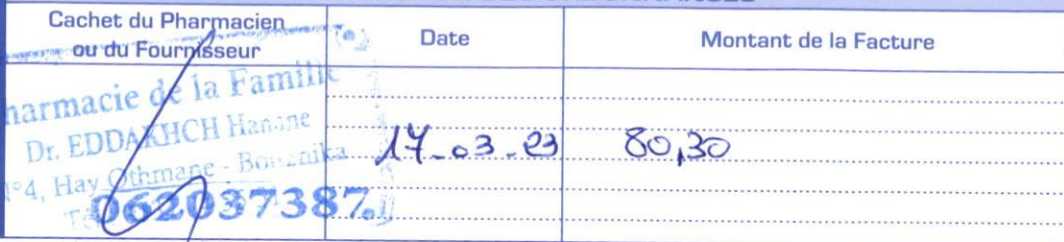 Cachet du Pharmacien
ou du Fournisseur
Date
Montant de la Facture
harmacie de la Famille
Dr. EDDAKHCH Hanane
N°4, Hay Othmane - Bouznika
062037387
17-03-23
80,30